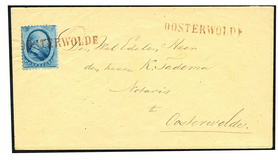 OOSTERWOLDE
OOSTERWOLDE
Den Wel Edelen Heer
den heere K. Tadema
Notaris
te
Oosterwolde.